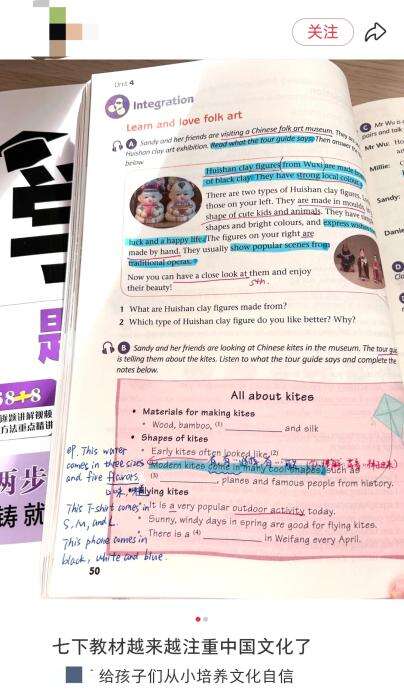 关注
Unit 4
Integration
Learn and love folk art
A Sandy and her friends are visiting a Chinese folk art museum. They
Huishan clay art exhibition. Read what the tour guide says. Then answer
below.
Huishan clay figures from Wuxi are made
of black clay. They have strong local colour
There are two types of Huishan clay figures.
those on your left. They are made in moulds
shape of cute kids and animals. They have
shapes and bright colours, and express wishes
luck and a happy life. The figures on your right are
made by hand. They usually show popular scenes from
traditional operas.
Now you can have a close look at them and enjoy
their beauty!
sth.
1 What are Huishan clay figures made from?
2 Which type of Huishan clay figure do you like better? Why?
B Sandy and her friends are looking at Chinese kites in the museum. The tour
is telling them about the kites. Listen to what the tour guide says and complete the
notes below.
All about kites
• Materials for making kites
• Wood, bamboo, (1) and silk
• Shapes of kites
• Early kites often looked like (2)
Modern kites come in many cool shapes, such as
(3) , planes and famous people from history.
Flying kites
• It is a very popular outdoor activity today.
• Sunny, windy days in spring are good for flying kites.
• There is a (4) in Weifang every April.
eg. This water
comes in three sizes
and five flavors.
This T-shirt comes in
S, M, and L
This phone comes in
black, white and blue.
50
C Mr Wu
pairs and talk
Mr Wu:
Millie:
Sandy:
Danie
D
58+8
难题讲解视频
方法重点精讲
两步
铸就
七下教材越来越注重中国文化了
给孩子们从小培养文化自信